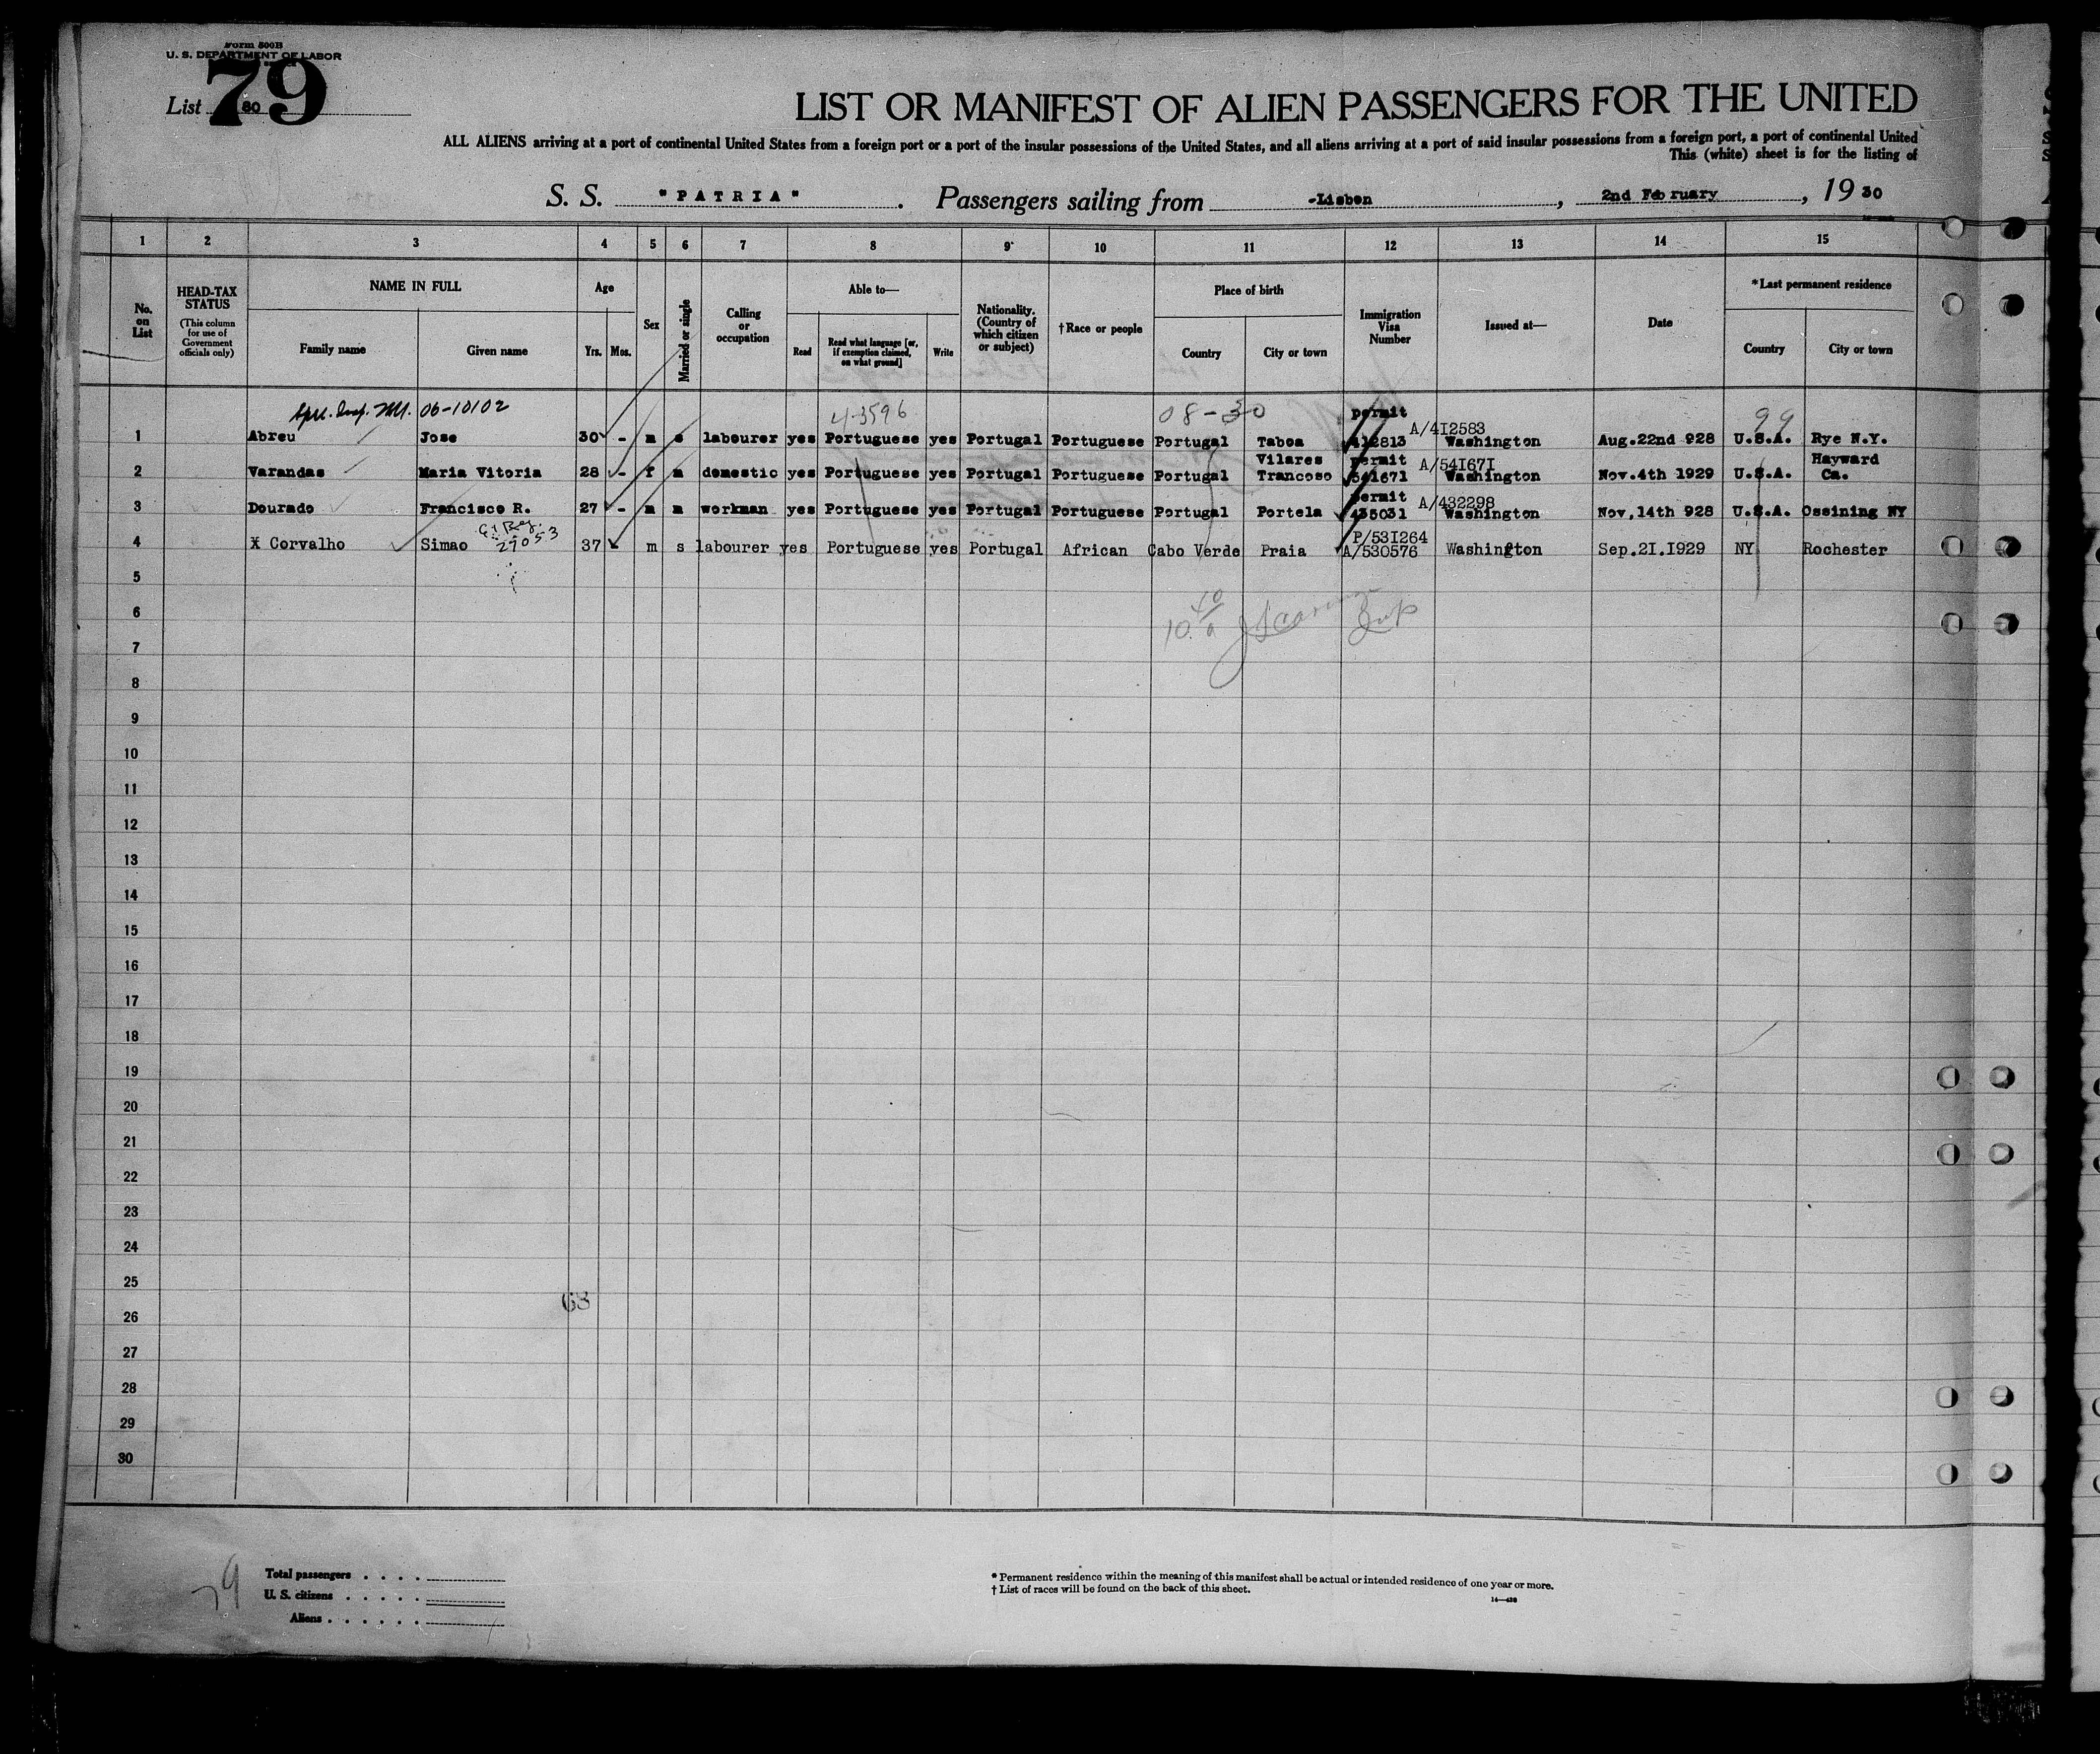 Form 500B
U. S. DEPARTMENT OF LABOR
List 80
79
LIST OR MANIFEST OF ALIEN PASSENGERS FOR THE UNITED
ALL ALIENS arriving at a port of continental United States from a foreign port or a port of the insular possessions of the United States, and all aliens arriving at a port of said insular possessions from a foreign port, a port of continental United
This (white) sheet is for the listing of
S. S. "PATRIA" . Passengers sailing from -Lisbon , 2nd February , 19 30
1 2 3 4 5 6 7 8 9 10 11 12 13 14 15
No. on List
HEAD-TAX STATUS (This column for use of Government officials only)
NAME IN FULL
Family name Given name
Age
Yrs. Mos.
Sex
Married or single
Calling or occupation
Able to—
Read Read what language [or, if exemption claimed, on what ground] Write
Nationality. (Country of which citizen or subject)
†Race or people
Place of birth
Country City or town
Immigration Visa Number
Issued at—
Date
*Last permanent residence
Country City or town
06-10102 4-3596 08-30 99
1 Abreu Jose 30 - m s labourer yes Portuguese yes Portugal Portuguese Portugal Taboa permit 412813 A/4I2583 Washington Aug.22nd 928 U.S.A. Rye N.Y.
2 Varandas Maria Vitoria 28 - f m domestic yes Portuguese yes Portugal Portuguese Portugal Vilares Trancoso permit 541671 A/54I67I Washington Nov.4th 1929 U.S.A. Hayward Ca.
3 Dourado Francisco R. 27 - m m workman yes Portuguese yes Portugal Portuguese Portugal Portela permit 435031 A/432298 Washington Nov,14th 928 U.S.A. Ossining NY
4 X Corvalho Simao 29053 37 m s labourer yes Portuguese yes Portugal African Cabo Verde Praia P/53I264 A/530576 Washington Sep.2I.I929 NY Rochester
5
6
7
8
9
10
11
12
13
14
15
16
17
18
19
20
21
22
23
24
25
63
26
27
28
29
30
79
Total passengers
U. S. citizens
Aliens
* Permanent residence within the meaning of this manifest shall be actual or intended residence of one year or more.
† List of races will be found on the back of this sheet.